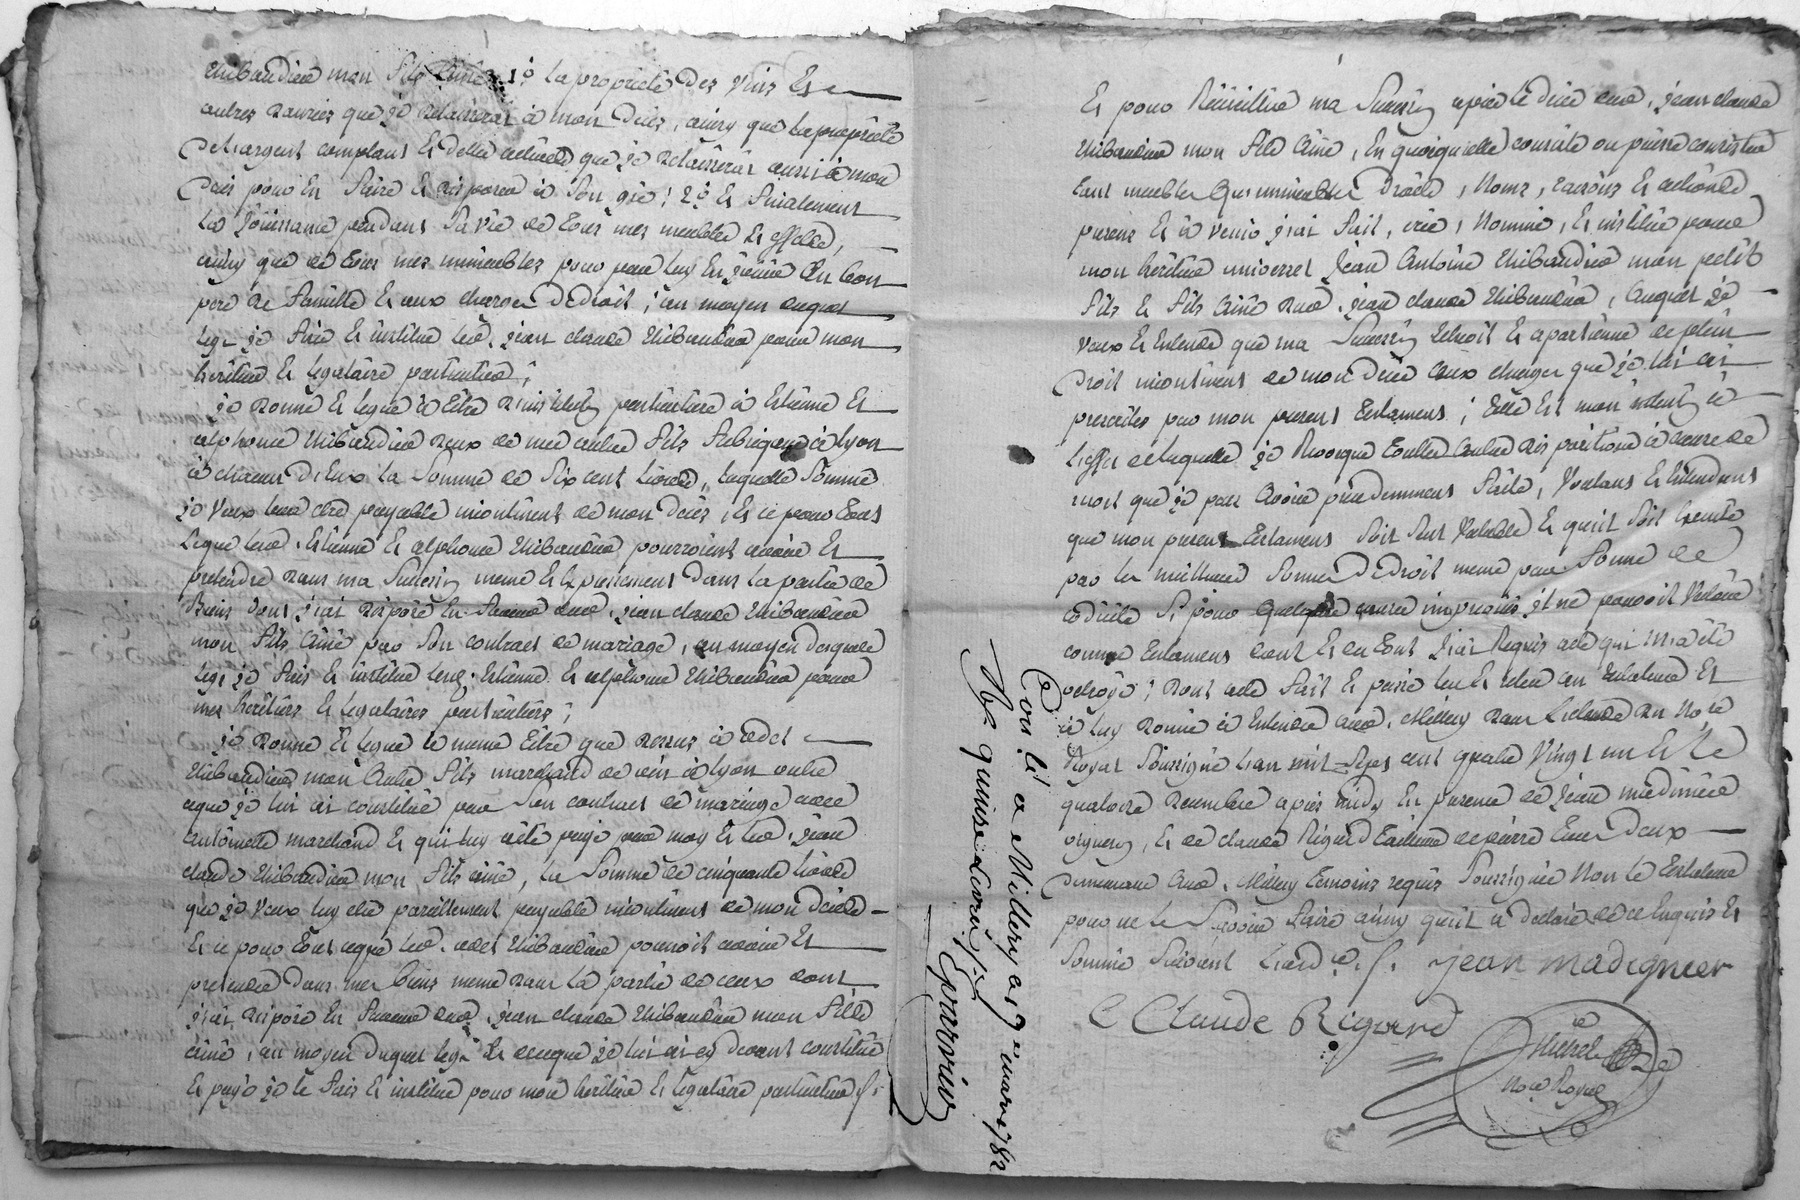 thibaudier mon fils ainé 1º la propriété des vins Et
autres danrées que je relaisserai à mon décès, ainsy que la propriété
de l'argent comptant Et dette actives que je relaisserai aussi à mon
décès pour En faire Et disposer à son gré ; 2º Et finalement
la jouissance pendant sa vie de tous mes meubles Et effets,
ainsy que de tous mes immeubles pour par luy En jouir En bon
père de famille Et aux charges de droit ; au moyen duquel
legs je fais Et institue led. jean claude thibaudier pour mon
héritier Et légataire particulier ;
je donne Et legue à titre d'institution particulière à Estienne Et
alphonce thibaudier deux de mes autres fils fabriquants à lyon
à chacun d'Eux la somme de six cent livres, laquelle somme
je veux leur être payable incontinent de mon décès, Et ce pour tout
ce que led. Estienne Et alphonce thibaudier pourroient avoir Et
prétendre dans ma succession meme Et expressement dans la partie de
Biens dont j'ai disposé En faveur dud. jean claude thibaudier
mon fils ainé par son contract de mariage, au moyen desquels
legs je fais Et institue lesd. Estienne Et alphonce thibaudier pour
mes héritiers Et légataires particuliers ;
je donne Et legue à meme titre que dessus à
thibaudier mon autre fils marchand de vin à lyon outre
ce que je lui ai constitué par son contract de mariage avec
antoinette marchand Et qui luy a été payé par moy Et led. jean
claude thibaudier mon fils ainé, la somme de cinquante livres
que je veux luy être pareillement payable incontinent de mon décès
Et ce pour tout ce que led. thibaudier pourroit avoir Et
prétendre dans mes biens meme dans la partie de ceux dont
j'ai disposé En faveur dud. jean claude thibaudier mon fils
ainé, au moyen duquel legs Et de ce que je lui ai cy devant constitué
Et payé je le fais Et institue pour mon héritier Et légataire particulier
Et pour Recueillir ma succession après le décès dud. jean claude
thibaudier mon fils ainé, En quoi qu'elle consiste ou puisse consister
tant meubles que immeubles droits, noms, raisons Et actions
présens Et à venir j'ai fait, créé, nommé, Et institué pour
mon héritier universel jean antoine thibaudier mon petit
fils Et fils ainé dud. jean claude thibaudier, auquel je
veux Et Entends que ma succession Echoit Et apartienne de plein
droit incontinent de mon décès aux charges que je lui ai
prescrites par mon présent testament ; telle Est mon intention à
l'effet de laquelle je Revoque toutes autres dispositions à cause de
mort que je puis avoir précédemment faites, voulant Et Entendant
que mon présent testament soit seul valable Et qu'il soit Exécuté
par les meilleures formes de droit meme par forme de
codicile si pour quelque cause imprévue il ne pouvoit valoir
comme testament dont Et du tout j'ai Requis acte qui m'a été
octroyé ; dont acte fait Et passé lu Et relu au testateur Et
à luy donné à Entendre aud. Millery dans l'etude du No.re
Royal soussigné l'an mil sept cent quatre vingt un Et le
quatorze decembre après midy En présence de jean madinier
vigneron, Et de claude Rigard tailleur de pierre tous deux
demeurant aud. Millery témoins requis soussignés non le testateur
pour ne le savoir faire ainsy qu'il a déclaré de ce Enquis Et
sommé suivant jean madignier
Claude Rigard
Michel
No.re Royal
Con.lé a Millery ce 7 mars 1782
Rc quinze livres
Evrarvier